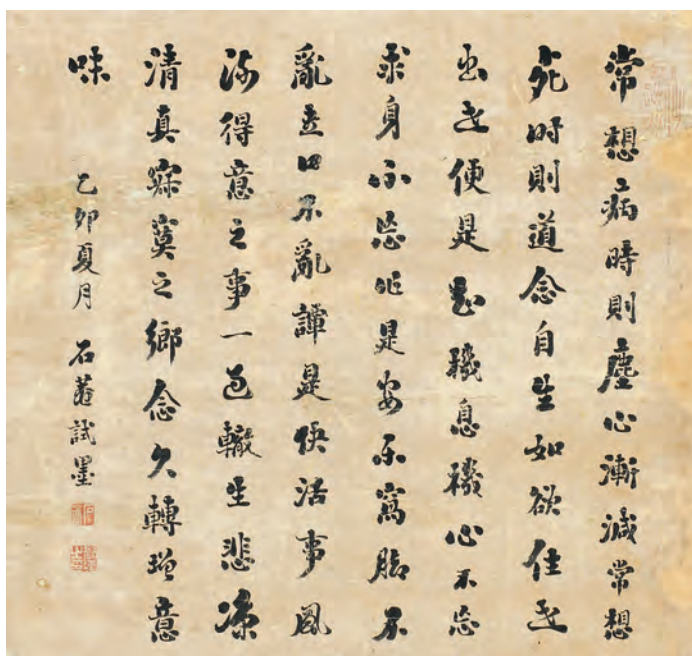 常想病時則塵心漸減常想
死時則道念自生如欲住世
出世便是知機息機心不忘
求身不忘作是安樂窩脚不
亂立口不亂譚是快活事風
流得意之事一過轍生悲凉
清真寂寞之鄉念久轉增意
味
乙卯夏月 石菴試墨